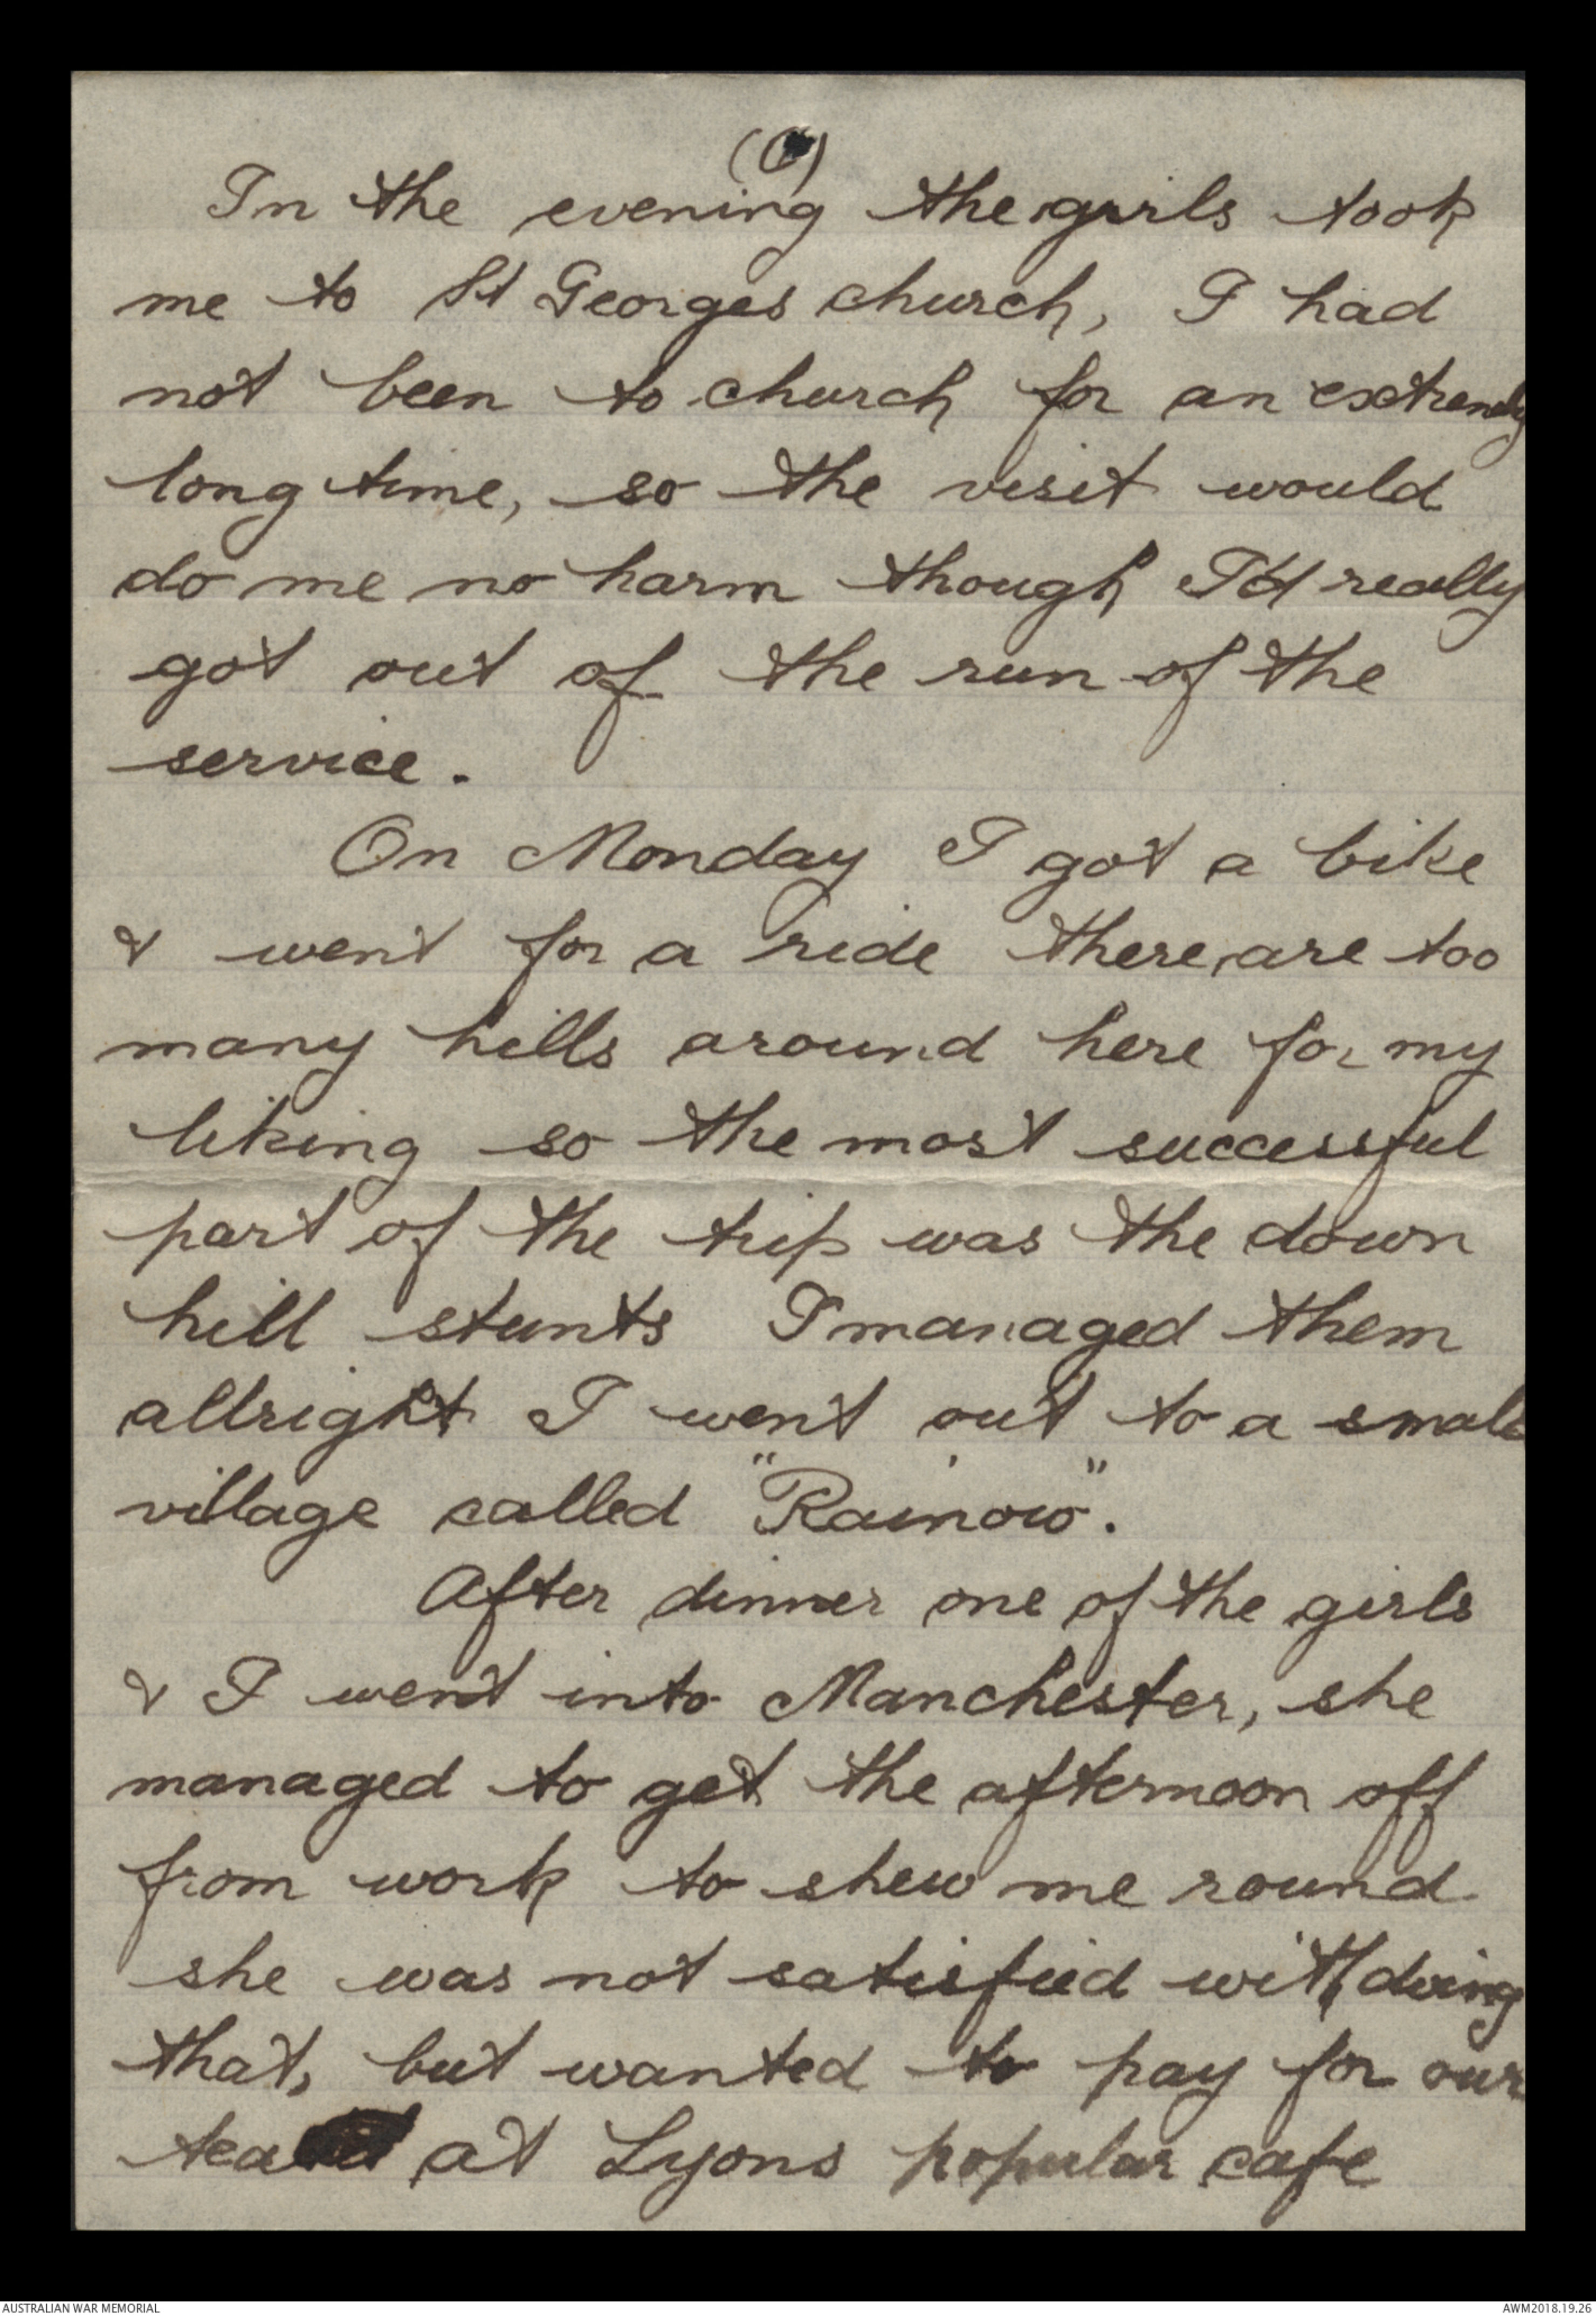 In the evening the girls took
me to St Georges church, I had
not been to church for an extremely
long time, so the visit would
do me no harm though I'd really
got out of the run of the
service.
On Monday I got a bike
& went for a ride there are too
many hills around here for my
liking so the most successful
part of the trip was the down
hill stunts I managed them
allright I went out to a small
village called "Rainow".
After dinner one of the girls
& I went into Manchester, she
managed to get the afternoon off
from work to shew me round
she was not satisfied with doing
that, but wanted to pay for our
tea at Lyons popular cafe
AUSTRALIAN WAR MEMORIAL
AWM2018.19.26